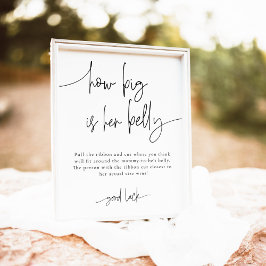 how big
is her belly
Pull the ribbon and cut where you think
will fit around the mommy to be's belly.
The person with the ribbon cut closest to
her actual size wins!
good luck